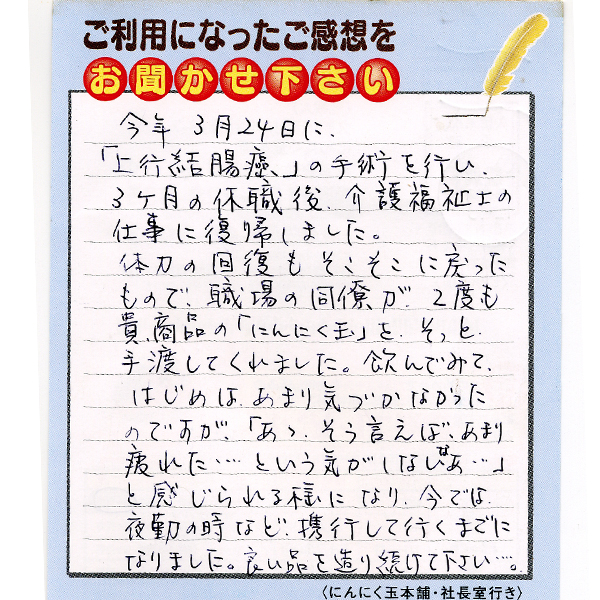 ご利用になったご感想を
お聞かせ下さい
今年 3月24日に、
「上行結腸癌、」の手術を行い、
3ヶ月の休職後、介護福祉士の
仕事に復帰しました。
体力の回復もそこそこに戻った
もので、職場の同僚が、2度も
貴、商品の「にんにく玉」を、そっと、
手渡してくれました。飲んでみて、
はじめは、あまり気づかなかった
のですが、「あゝ、そう言えば、あまり
疲れた…という気がしないなあ…」
と感じられる様になり、今では、
夜勤の時など、携行して行くまでに
なりました。良い品を造り続けて下さい…。
〈にんにく玉本舗・社長室行き〉